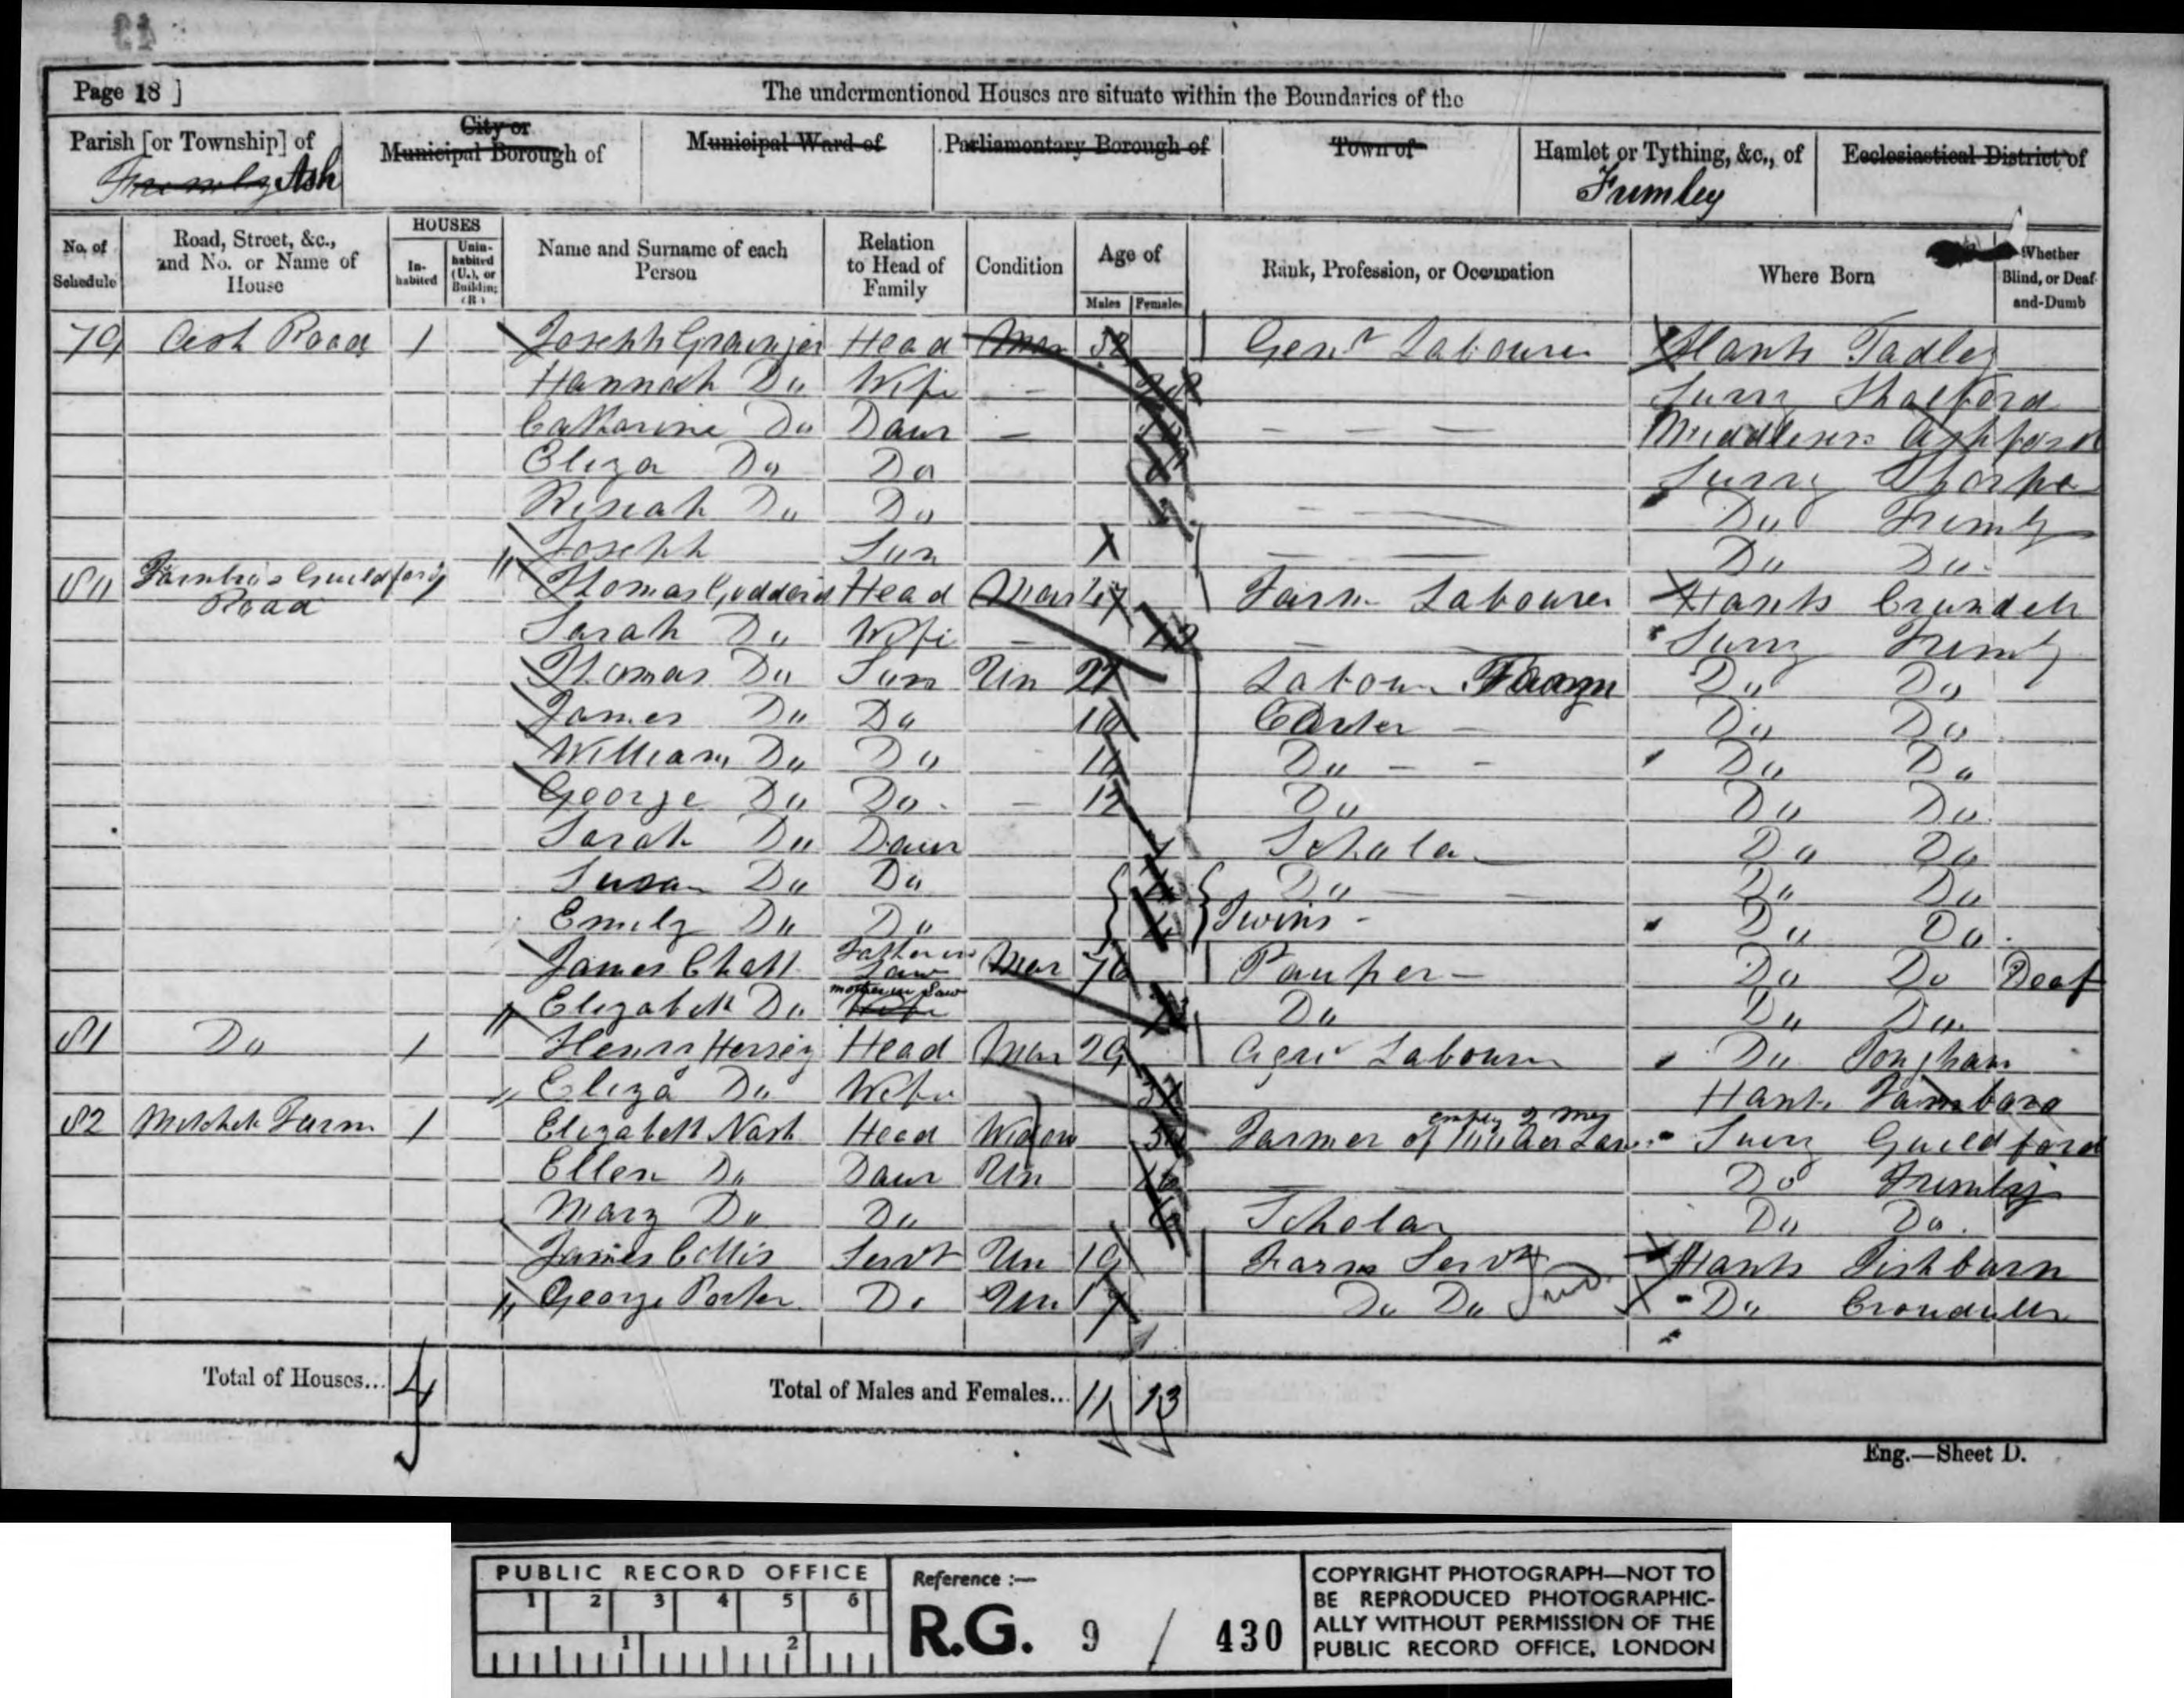 Page 18 ]
The undermentioned Houses are situate within the Boundaries of the
Parish [or Township] of
Frimley Ash
City or
Municipal Borough of
Municipal Ward of
Parliamentary Borough of
Town of
Hamlet or Tything, &c., of
Frimley
Ecclesiastical District of
No. of Schedule
Road, Street, &c., and No. or Name of House
HOUSES
In-habited
Unin-habited (U.), or Building (B)
Name and Surname of each Person
Relation to Head of Family
Condition
Age of
Males Females
Rank, Profession, or Occupation
Where Born
Whether Blind, or Deaf-and-Dumb
79 Ash Road 1 Joseph Grainger Head Mar 38 Genr Labourer Hants Tadley
Hannah Do Wife — Surry Shalford
Catharine Do Daur — — — — Middlesex Ashford
Eliza Do Do Surry Thorpe
Do Do — — Do Frimly
Joseph Son — — Do Do
80 Guildford Road Thomas Goddard Head Mar 47 Farm Labourer Hants Crundell
Sarah Do Wife — 42 — Surry Frimly
Thomas Do Son Un 21 Labour Do Do
James Do Do Carter — Do Do
William Do Do Do — - Do Do
George Do Do — 12 Do Do Do
Sarah Do Daur Scholar Do Do
Susan Do Do 4 Do — — Do Do
Emily Do Do 4 Twins - Do Do
James Chatt Father in Law Mar 76 Pauper — Do Do Deaf
Elizabeth Do Wife mother in Law Do Do Do
81 Do 1 Henry Hersey Head Mar 29 Agri Labourer Do Tongham
Eliza Do Wife Hants Farnboro
82 Farm 1 Elizabeth Nash Head Widow Farmer of Surry Guildford
employ 2 men
Ellen Do Daur Un 16 — — Do Frimley
Mary Do Do Scholar Do Do
James Collis Servt Un 19 Farm Servt Hants
George Porter Do Un 17 Do Do Do Crondell
Total of Houses... 4
Total of Males and Females... 11 13
Eng.—Sheet D.
PUBLIC RECORD OFFICE
1 2 3 4 5 6
1 2
Reference :—
R.G. 9 / 430
COPYRIGHT PHOTOGRAPH—NOT TO
BE REPRODUCED PHOTOGRAPHIC-
ALLY WITHOUT PERMISSION OF THE
PUBLIC RECORD OFFICE, LONDON